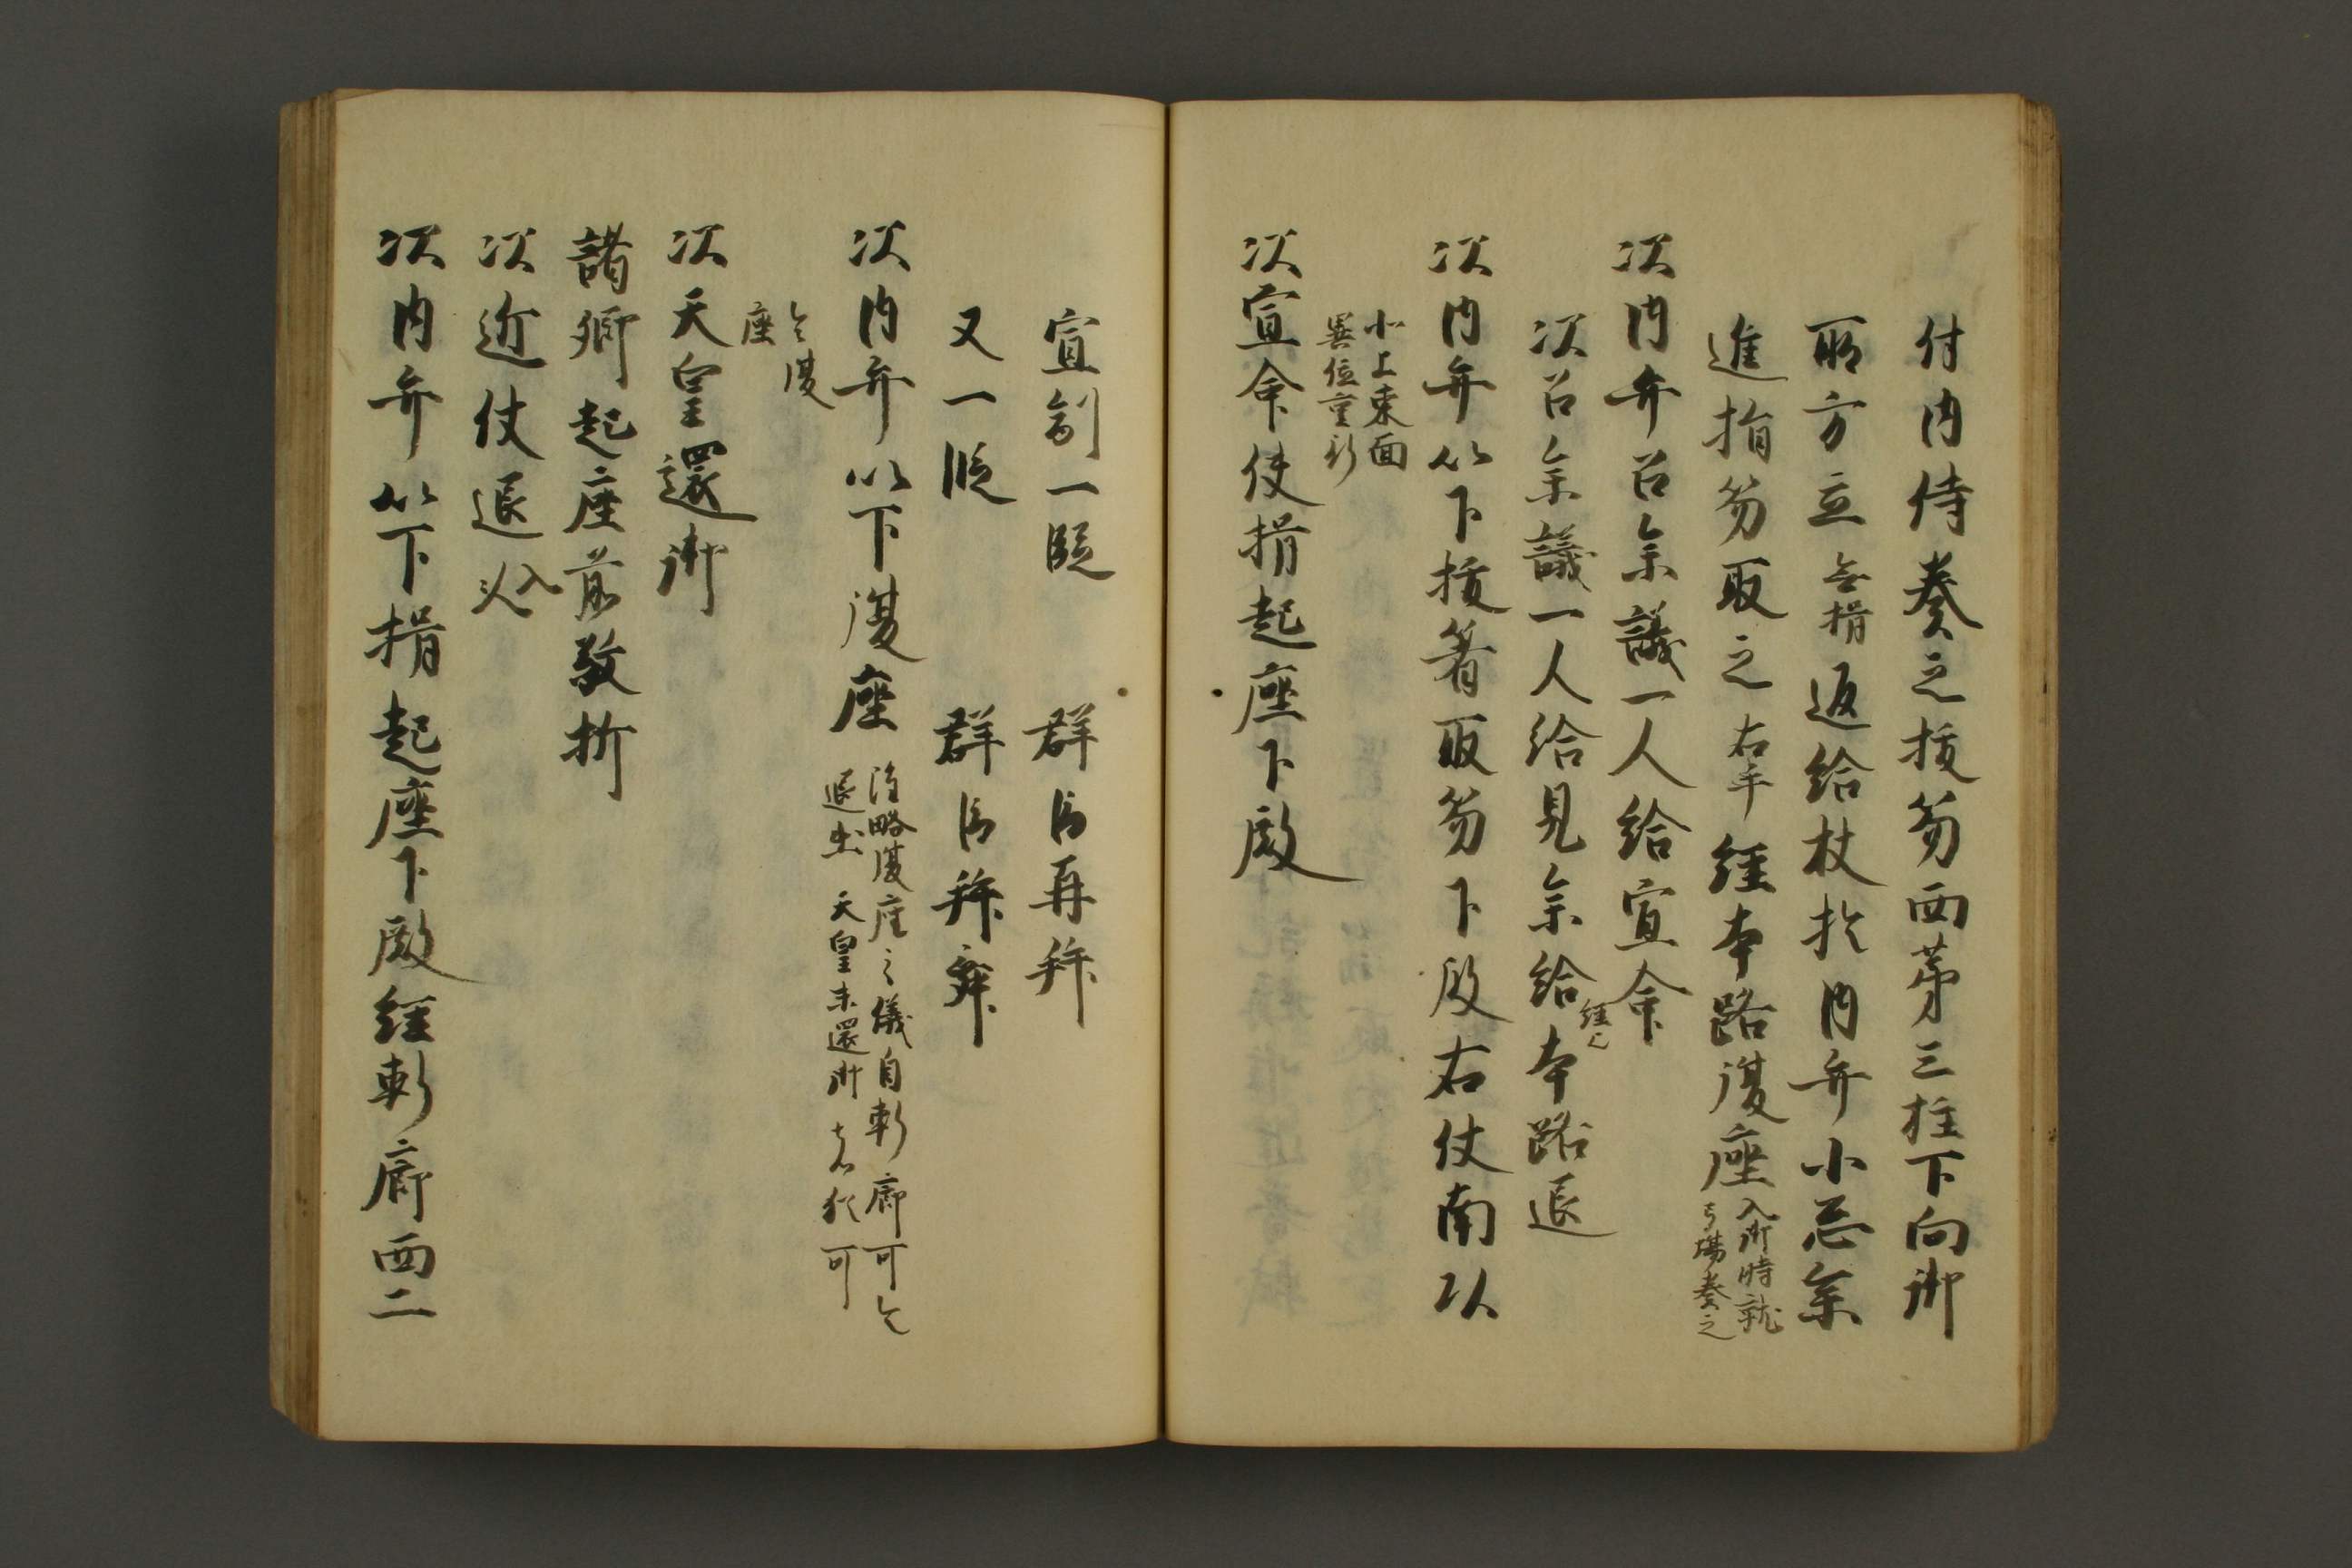 付内侍奏之抜笏西第三柱下向御
所方立無揖返給杖於内弁小忌参
進揖笏取之右手経本路復座入御時就
弓場奏之
次内弁召参議一人給宣命
次召参議一人給見参給経本路退
次内弁以下抜箸取笏下殿右仗南以
北上東面
異位重行
次宣命使揖起座下殿
宣制一段　群臣再拝
又一段　群臣拝舞
次内弁以下復座
近略復座之儀自軒廊可令
退出 天皇未還御者猶可
令復
座
次天皇還御
諸卿起座前敬折
次近仗退入
次内弁以下揖起座下殿経軒廊西二